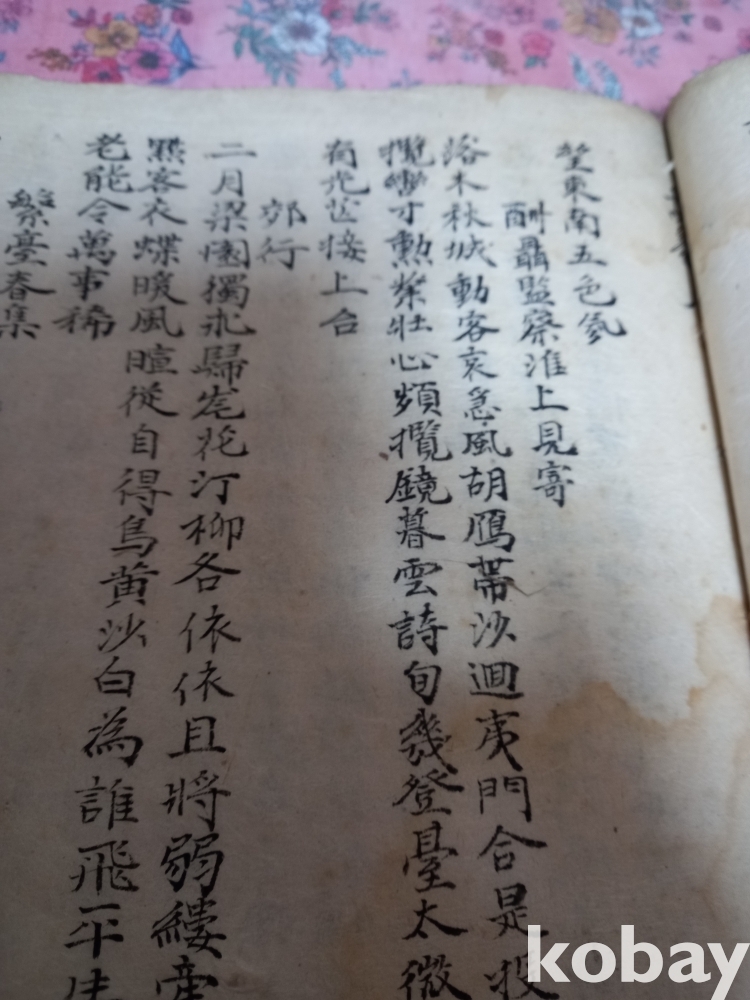 望東南五色氛
酬聶監察淮上見寄
落木秋城動客哀急風胡鴈帶沙迴夷門合是投
攬轡才勳業壯心頻攬鏡暮雲詩句幾登臺太微
有光芒接上台
郊行
二月梁園獨未歸花汀柳各依依且將弱縷牽
點客衣蝶暖風暄從自得烏黃沙白為誰飛平生
老能令萬事稀
繁臺春集
kobay